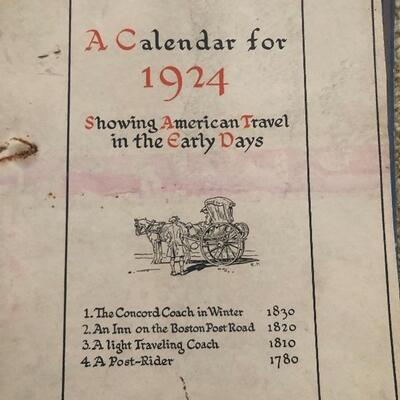 A Calendar for
1924
Showing American Travel
in the Early Days
1. The Concord Coach in Winter 1830
2. An Inn on the Boston Post Road 1820
3. A light Traveling Coach 1810
4. A Post-Rider 1780